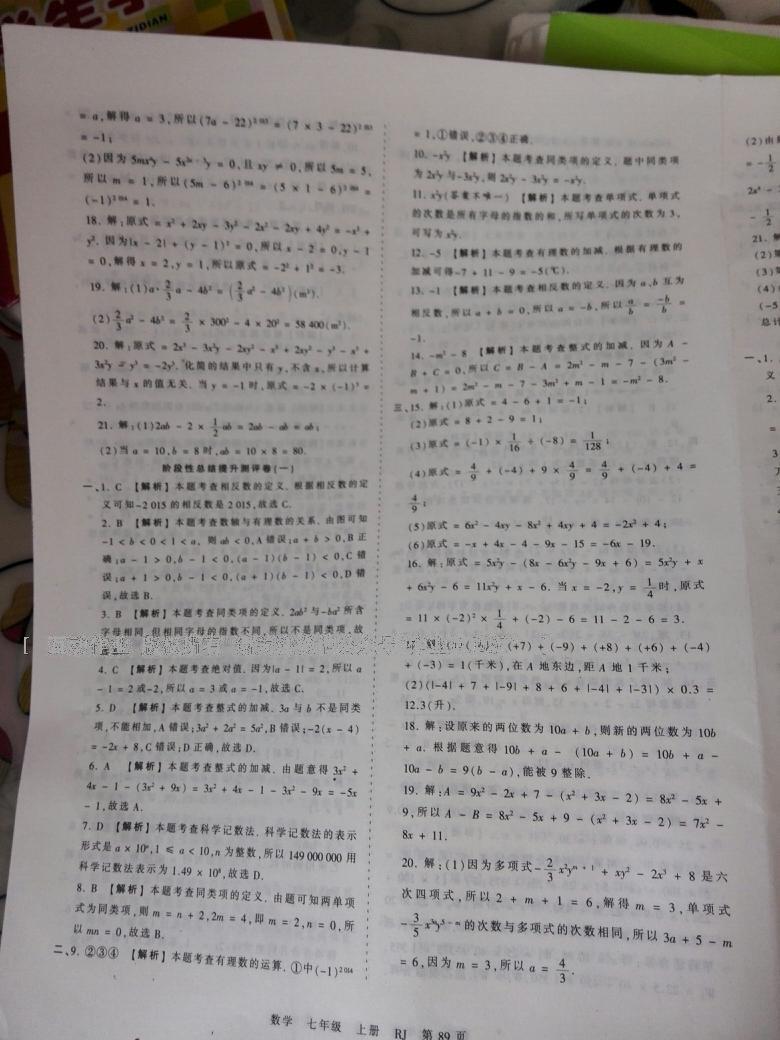 = a,解得 a = 3,所以(7a - 22)²⁰¹³ = (7 × 3 - 22)²⁰¹³
= -1;
(2)因为 5mxᵃy - 5x²ᵃ⁻³y = 0,且 xy ≠ 0,所以 5m = 5,
所以 m = 1,所以(5m - 6)²⁰¹⁴ = (5 × 1 - 6)²⁰¹⁴ =
(-1)²⁰¹⁴ = 1.
18. 解:原式 = x² + 2xy - 3y² - 2x² - 2xy + 4y² = -x² +
y². 因为|x - 2| + (y - 1)² = 0,所以 x - 2 = 0,y - 1
= 0,解得 x = 2,y = 1,所以原式 = -2² + 1² = -3.
19. 解:(1)a·2/3 a - 4b² = (2/3 a² - 4b²)(m²).
(2)2/3 a² - 4b² = 2/3 × 300² - 4 × 20² = 58 400(m²).
20. 解:原式 = 2x³ - 3x²y - 2xy² - x³ + 2xy² - y³ - x³ +
3x²y - y³ = -2y³. 化简的结果中只有 y,不含 x,所以计算
结果与 x 的值无关. 当 y = -1 时,原式 = -2 × (-1)³ =
2.
21. 解:(1)2ab - 2 × 1/2 ab = 2ab - ab = ab;
(2)当 a = 10,b = 8 时,ab = 10 × 8 = 80.
阶段性总结提升测评卷(一)
一、1. C 【解析】本题考查相反数的定义. 根据相反数的定
义可知 -2 015 的相反数是 2 015,故选 C.
2. B 【解析】本题考查数轴与有理数的关系. 由图可知
-1 < b < 0 < 1 < a, 则 ab < 0,A 错误;a + b > 0,B 正
确;a - 1 > 0,b - 1 < 0,(a - 1)(b - 1) < 0,C 错
误;a + 1 > 0,b - 1 < 0,(a + 1)(b - 1) < 0,D 错
误,故选 B.
3. B 【解析】本题考查同类项的定义. 2ab² 与 -ba² 所含
字母相同,但相同字母的指数不同,所以不是同类项,故
4. C 【解析】本题考查绝对值. 因为|a - 1| = 2,所以 a
- 1 = 2 或 -2,所以 a = 3 或 a = -1,故选 C.
5. D 【解析】本题考查整式的加减. 3a 与 b 不是同类
项,不能相加,A 错误;3a² + 2a² = 5a²,B 错误;-2(x - 4)
= -2x + 8,C 错误;D 正确,故选 D.
6. A 【解析】本题考查整式的加减. 由题意得 3x² +
4x - 1 - (3x² + 9x) = 3x² + 4x - 1 - 3x² - 9x = -5x
- 1,故选 A.
7. D 【解析】本题考查科学记数法. 科学记数法的表示
形式是 a × 10ⁿ,1 ≤ a < 10,n 为整数,所以 149 000 000 用
科学记数法表示为 1.49 × 10⁸,故选 D.
8. B 【解析】本题考查同类项的定义. 由题可知两单项
式为同类项,则 m = n + 2,2m = 4,即 m = 2,n = 0,所
以 mn = 0,故选 B.
二、9. ②③④ 【解析】本题考查有理数的运算. ①中(-1)²⁰¹⁴
= 1,①错误,②③④正确.
10. -x²y 【解析】本题考查同类项的定义. 题中同类项
为 2x²y 与 -3x²y,则 2x²y - 3x²y = -x²y.
11. x²y(答案不唯一) 【解析】本题考查单项式. 单项式
的次数是所有字母的指数的和,所写单项式的次数为 3,
可写为 x²y.
12. -5 【解析】本题考查有理数的加减. 根据有理数的
加减可得 -7 + 11 - 9 = -5(℃).
13. -1 【解析】本题考查相反数的定义. 因为 a、b 互为
相反数,所以 a + b = 0,所以 a = -b,所以 a/b = -b/b =
-1.
14. -m² - 8 【解析】本题考查整式的加减. 因为 A -
B + C = 0,所以 C = B - A = 2m² - m - 7 - (3m² -
m + 1) = 2m² - m - 7 - 3m² + m - 1 = -m² - 8.
三、15. 解:(1)原式 = 4 - 6 + 1 = -1;
(2)原式 = 8 + 2 - 9 = 1;
(3)原式 = (-1) × 1/16 ÷ (-8) = 1/128;
(4)原式 = 4/9 ÷ (-4) + 9 × 4/9 = 4/9 + (-4) + 4 =
4/9;
(5)原式 = 6x² - 4xy - 8x² + 4xy + 4 = -2x² + 4;
(6)原式 = -x + 4x - 4 - 9x - 15 = -6x - 19.
16. 解:原式 = 5x²y - (8x - 6x²y - 9x + 6) = 5x²y + x
+ 6x²y - 6 = 11x²y + x - 6. 当 x = -2,y = 1/4 时,原式
= 11 × (-2)² × 1/4 + (-2) - 6 = 11 - 2 - 6 = 3.
(+7) + (-9) + (+8) + (+6) + (-4)
+ (-3) = 1(千米),在 A 地东边,距 A 地 1 千米;
(2)(|-4| + 7 + |-9| + 8 + 6 + |-4| + |-3|) × 0.3 =
12.3(升).
18. 解:设原来的两位数为 10a + b,则新的两位数为 10b
+ a. 根据题意得 10b + a - (10a + b) = 10b + a -
10a - b = 9(b - a),能被 9 整除.
19. 解:A = 9x² - 2x + 7 - (x² + 3x - 2) = 8x² - 5x +
9,所以 A - B = 8x² - 5x + 9 - (x² + 3x - 2) = 7x² -
8x + 11.
20. 解:(1)因为多项式 -2/3 x²yᵐ⁺¹ + xy² - 2x³ + 8 是六
次四项式,所以 2 + m + 1 = 6,解得 m = 3,单项式
-3/5 x³ᵃy⁵⁻ᵐ 的次数与多项式的次数相同,所以 3a + 5 - m
= 6,因为 m = 3,所以 a = 4/3.
数学 七年级 上册 RJ 第 89 页